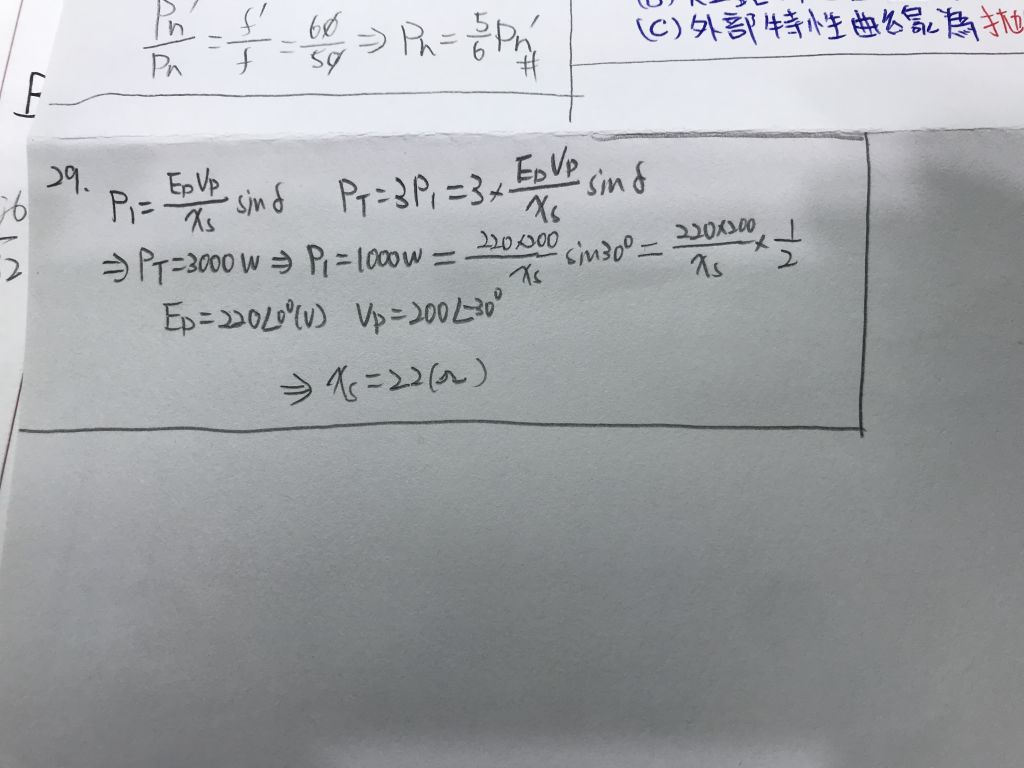 Pn'/Pn = f'/f = 60/50 ⇒ Pn = 5/6 Pn' #
(C) 外部特性曲線為
29.
P1 = EpVp/xs sin δ PT = 3P1 = 3 × EpVp/xs sin δ
⇒ PT = 3000W ⇒ P1 = 1000W = 220×200/xs sin30° = 220×200/xs × 1/2
Ep = 220∠0°(V) Vp = 200∠-30°
⇒ xs = 22(Ω)